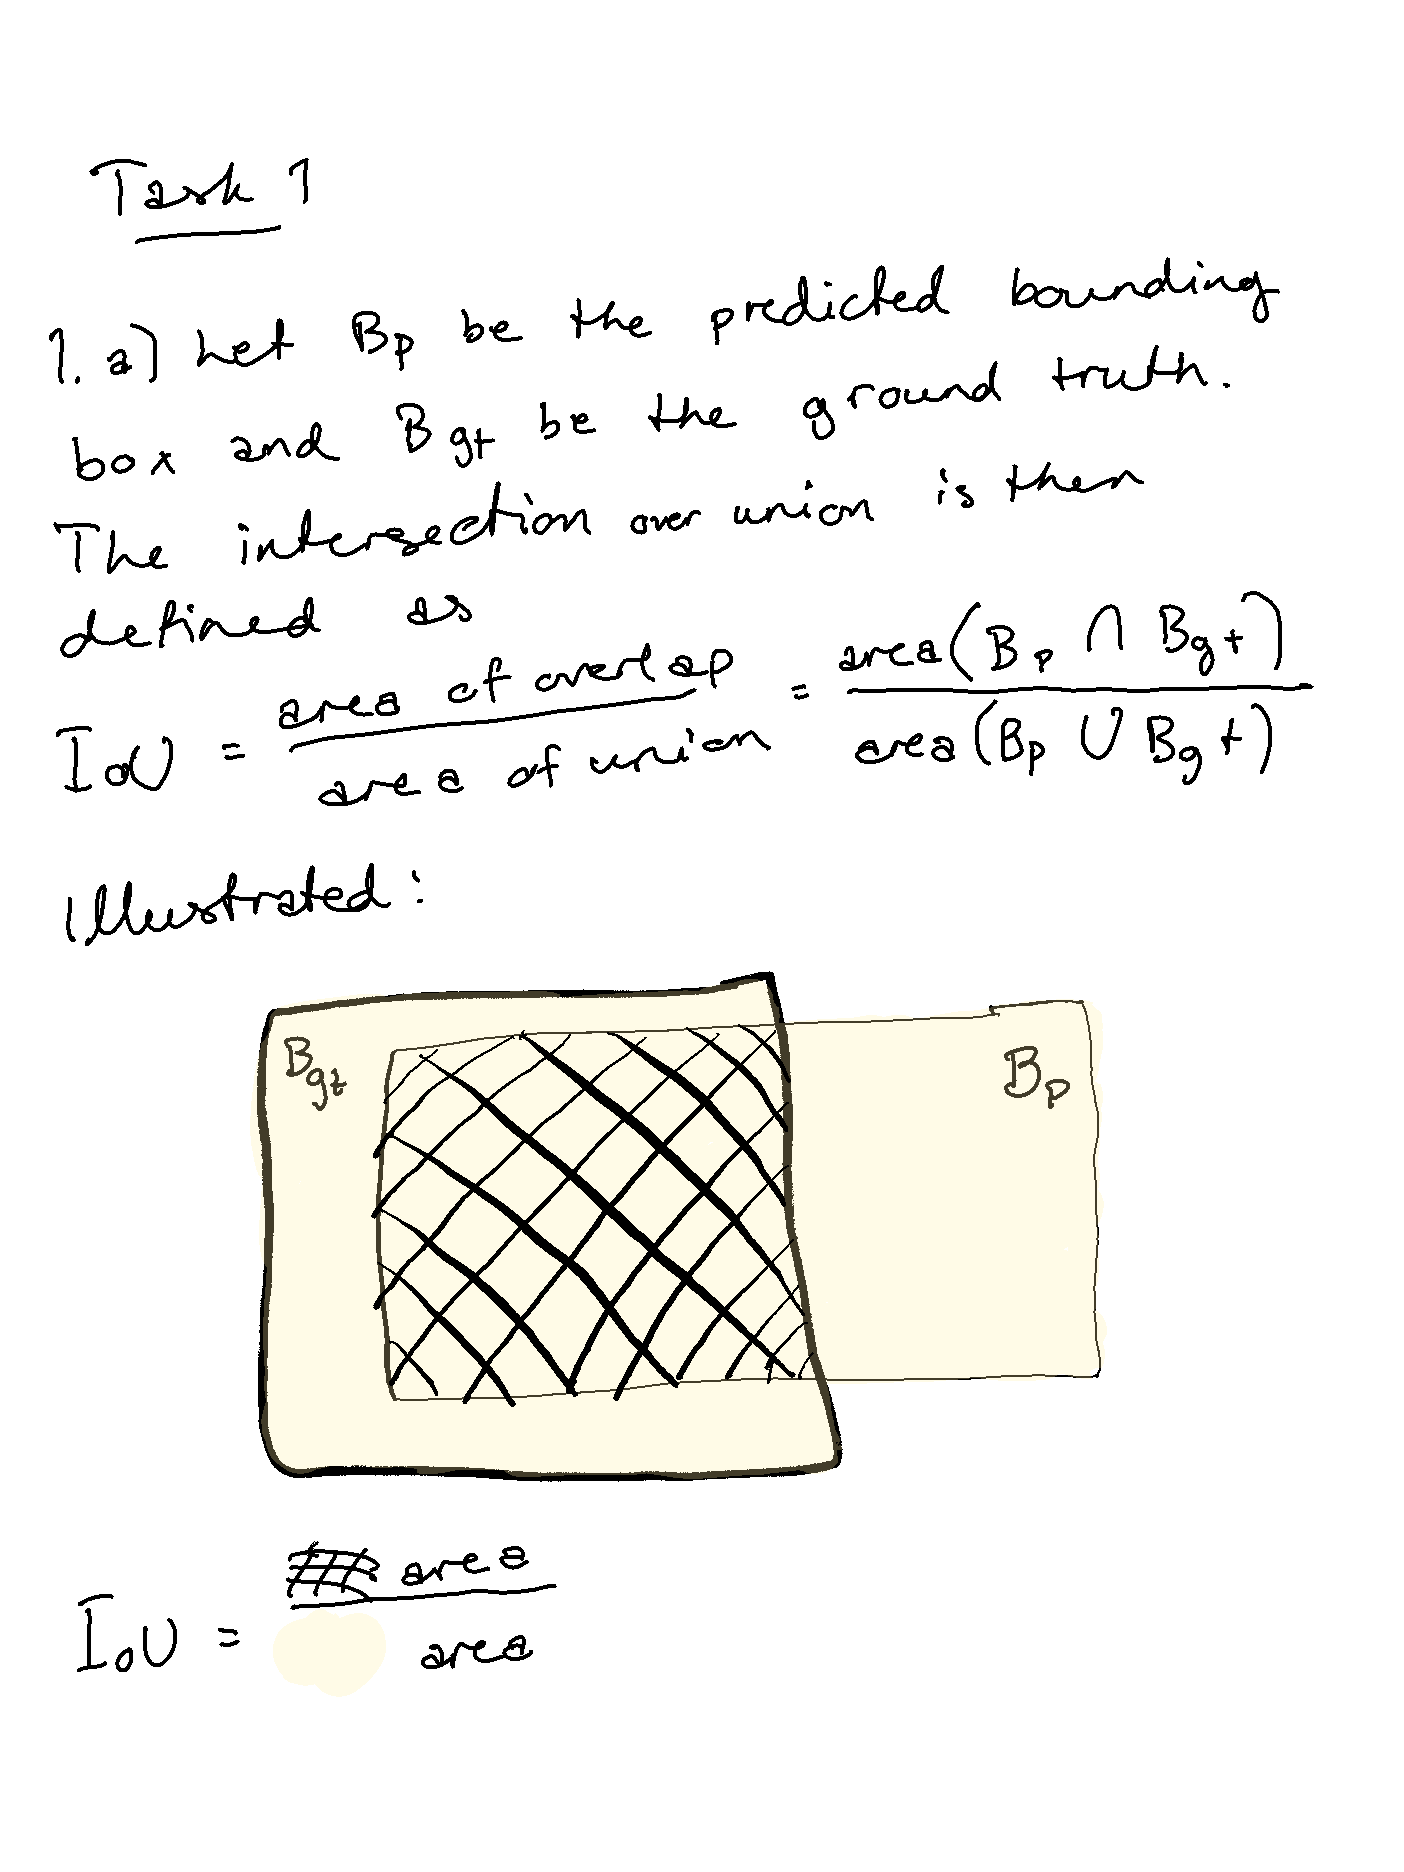 Task 1
1. a) Let Bp be the predicted bounding
box and Bgt be the ground truth.
The intersection over union is then
defined as
IoU = area of overlap / area of union = area(Bp ∩ Bgt) / area(Bp ∪ Bgt)
Illustrated:
Bgt
Bp
IoU = area / area